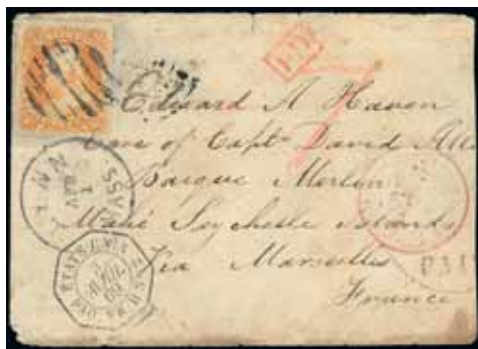 PD
Edward A Haven
Care of Capt David All
Barque Merlin
Mahé Seychelle Islands
Via Marseilles
France
LYNN
MASS.
APR
1
ETATS-UNIS
PAQ. FR. H
3
AVRIL
69
PAI